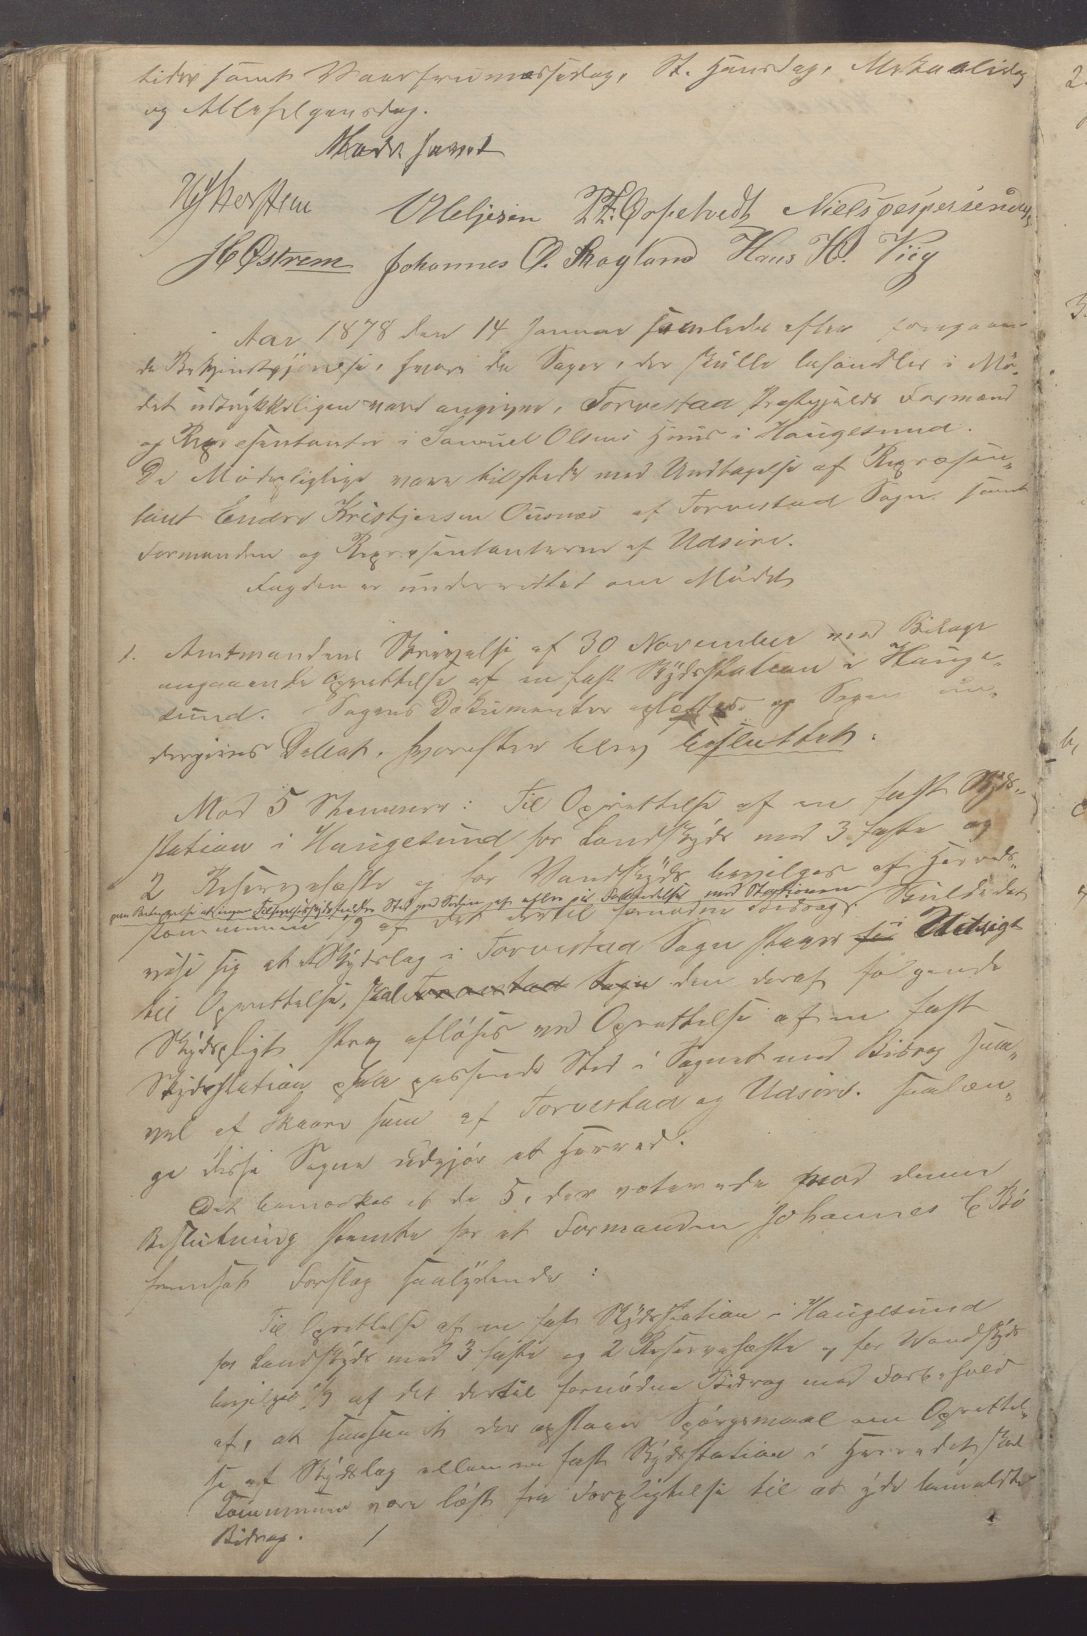 tider samt Vaarfruemessedag, St. Hansdag, Mikaelidag
og Allehelgensdag.
Mødet hævet
P. T. Orpetvedt Niels Jespersen
H Østrem Johannes O. Skogland Hans H. Viig
Aar 1878 den 14 Januar samledes efter foregaaen-
de Bekjendtgjørelse, hvori de Sager, der skulle behandles i Mø-
det udtrykkeligen vare angivne, Torvestad Præstegjælds Formænd
og Repræsentanter i Samuel Olsens Huus i Haugesund.
De Mødepligtige vare tilstede med Undtagelse af Repræsen-
tant Endre Kristjensen Ousnes af Torvestad Sogn samt
Formanden og Repræsentanterne af Udsire.
Fogden er underrettet om Mødet
1. Amtmandens Skrivelse af 30 November med Bilage
angaaende Oprettelse af en fast Skydsstation i Hauge-
sund. Sagens Dokumenter oplæstes og Sagen un-
dergives Debat, hvorefter blev besluttet:
Mod 5 Stemmer: Til Oprettelse af en fast Skyds-
station i Haugesund for Landskyds med 3 faste og
2 Reserveheste og for Vandskyds bevilges af Herreds-
kommunen 1/9 af det dertil fornødne Bidrag. Skulde det
vise sig at et Skydslag i Torvestad Sogn staaer i Udsigt
til Oprettelse, skal Torvestad Sogn den deraf følgende
Skydspligt strax afløses ved Oprettelse af en fast
Skydsstation paa passende Sted i Sognet med Bidrag saa-
vel af Skaare som af Torvestad og Udsire, saalæn-
ge disse Sogne udgjør et Herred.
Det bemærkes at de 5, der voterede mod denne
Beslutning stemte for et af Formanden Johannes E Bø
fremsat Forslag saalydende:
Til Oprettelse af en fast Skydsstation i Haugesund
for Landskyds med 3 faste og 2 Reserveheste og for Vandskyds
bevilges 1/9 af det dertil fornødne Bidrag med Forbehold
af, at saasnart der opstaaer Spørgsmaal om Oprettel-
se af Skydslag eller en fast Skydsstation i Herredet, skal
Kommunen være løst fra Forpligtelse til at yde bemeldte
Bidrag.